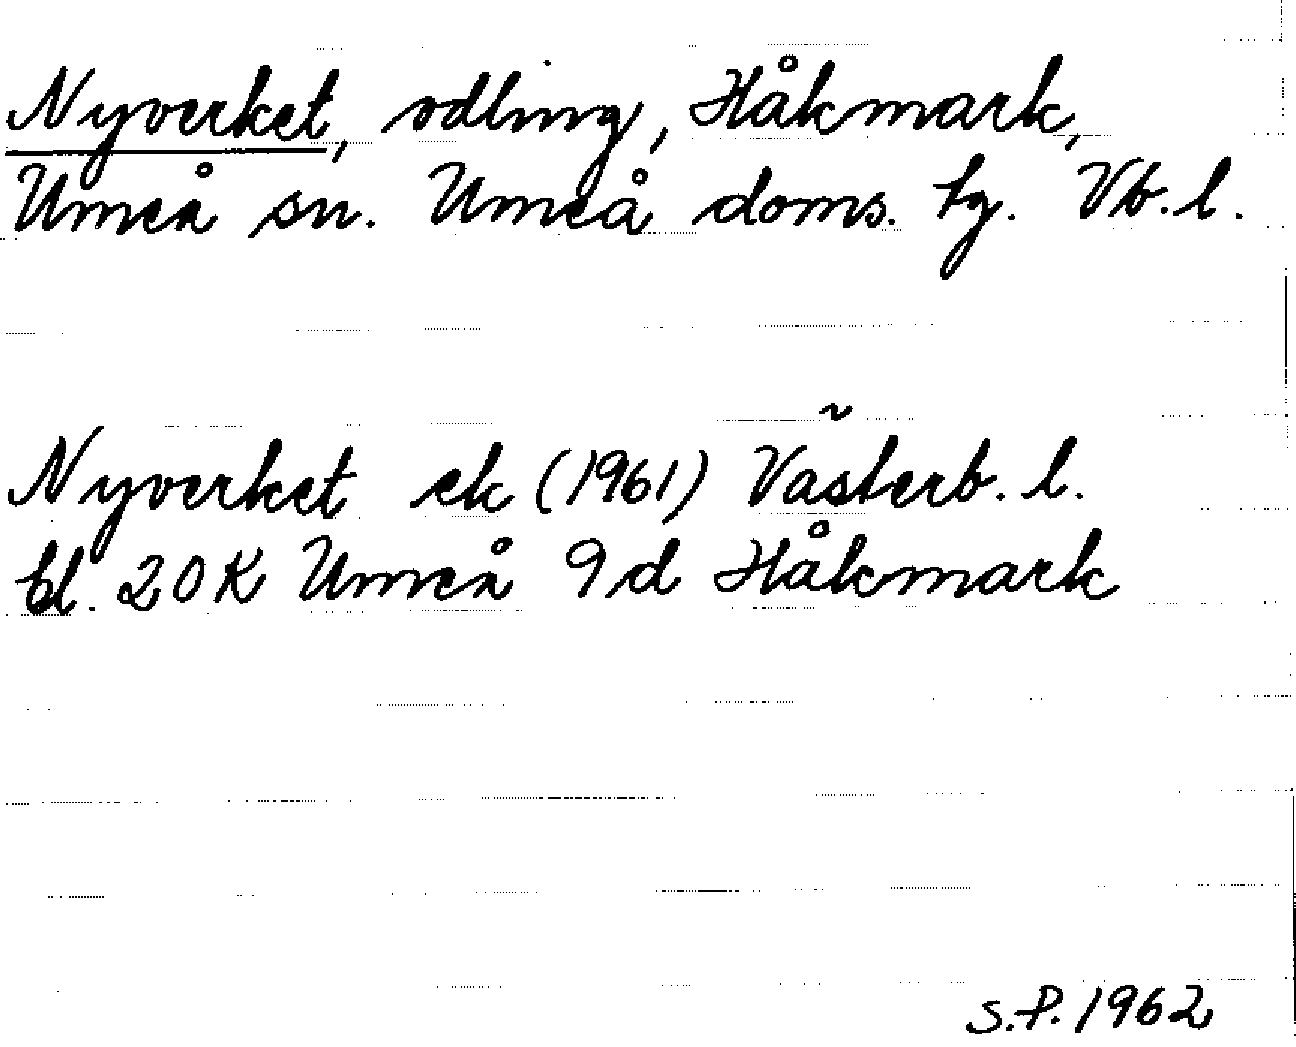 Nyverket, odling, Håkmark,
Umeå sn. Umeå doms. tg. Vb. l.
Nyverket ek (1961) Västerb. l.
bl. 20K Umeå 9d Håkmark
S.P. 1962